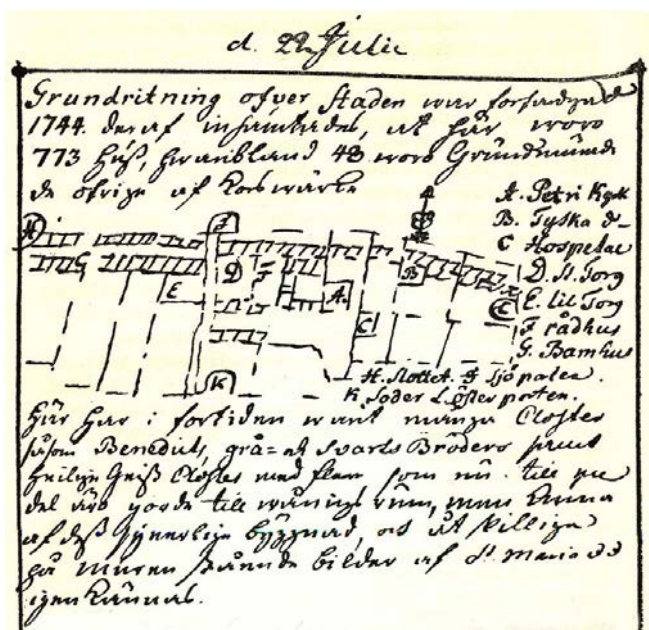 d. 22 Julii
Grundritning öfver staden war forfardgad
1744. deraf inhämtades, at här woro
773 hus, hwaribland 48 woro Grundmurade
de öfrige af Korswärke
A. Petri Kyrk
B. Tyska d-
C Hospetal
D. St. Torg
E. lil Torg
F rådhus
G. Barnhus
H. Slottet. I sjöpolen.
K. Söder L. Öster porten.
H
G
E
I
D
F
A.
B
C
L
K
här har i fortiden warit många Closter
såsom Benedicts, grå= och svarts Bröders samt
heilige Geist Closter med flera som nu till en
del äro gjorde till wånings rum, men kunna
af dess synnerlige byggnad, och åtskillige
på muren stående bilder af St. Maria
igenkännas.